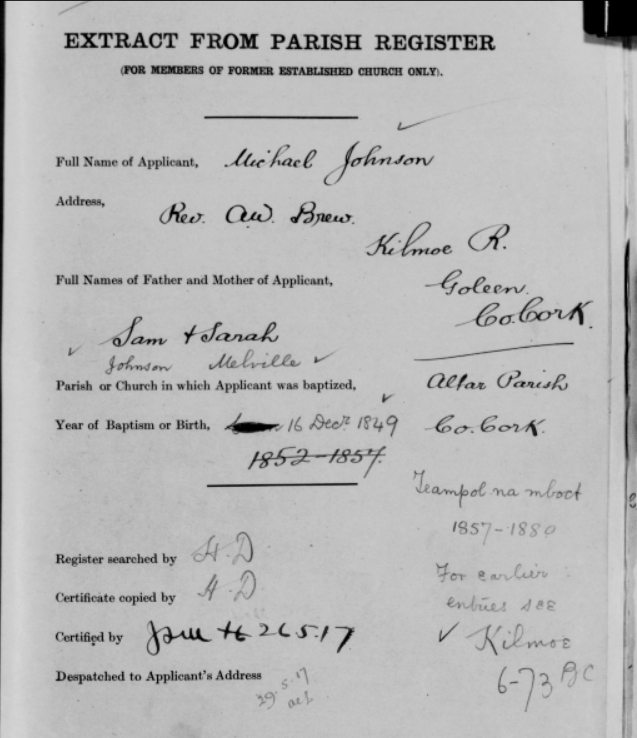 EXTRACT FROM PARISH REGISTER
(FOR MEMBERS OF FORMER ESTABLISHED CHURCH ONLY).
Full Name of Applicant, Michael Johnson
Address,
Rev. AW. Brew.
Kilmoe R.
Goleen.
Co. Cork.
Full Names of Father and Mother of Applicant,
Sam + Sarah
Johnson Melville
Parish or Church in which Applicant was baptized, Altar Parish
Co. Cork.
Year of Baptism or Birth, 16 Decr 1849
1852-1857.
Teampol na mboct
1857-1880
For earlier
entries see
Kilmoe
6-73 BC
Register searched by H.D
Certificate copied by H.D.
Certified by 26.5.17
Despatched to Applicant's Address
29.5.17